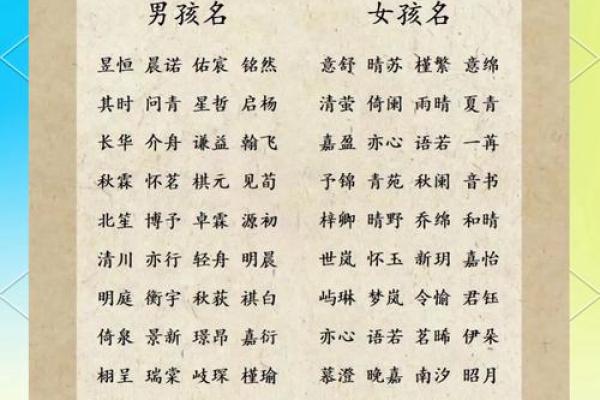 男孩名 女孩名
昱恒 晨诺 佑宸 铭然 意舒 晴苏 槿繁 意绵
其时 问青 星哲 启杨 清萤 倚阑 雨晴 夏青
长华 介舟 谦益 翰飞 嘉盈 亦心 语若 一苒
秋霖 怀茗 棋元 见荀 予锦 青苑 秋阑 音书
北笙 博予 卓霖 源初 梓卿 晴野 乔绵 和晴
清川 亦行 轻舟 明晨 世岚 怀玉 新玥 嘉怡
明庭 衡宇 秋荻 祺白 屿琳 梦岚 令愉 君钰
倚泉 景新 璟昂 嘉衍 亦心 语若 茗晞 伊朵
栩呈 瑞棠 歧琛 槿瑜 慕澄 晚嘉 南汐 昭月